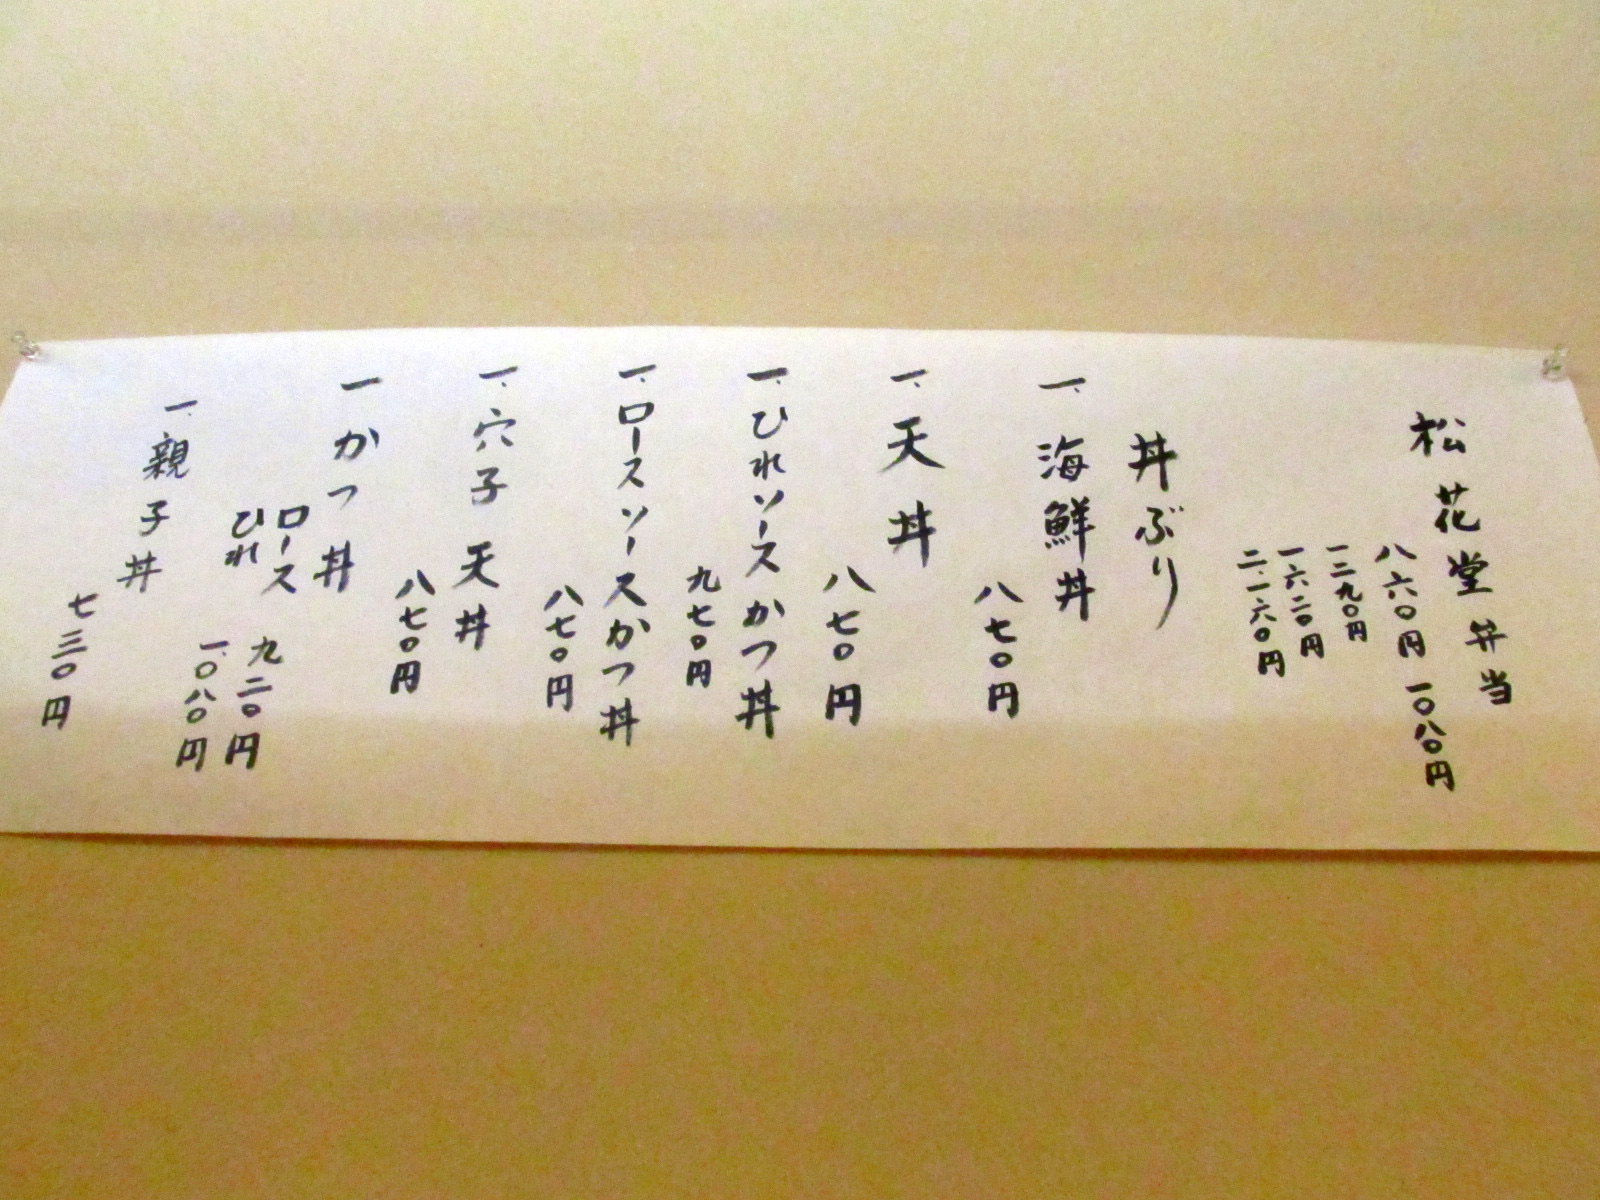 松花堂弁当
八六〇円 一〇八〇円
一二九〇円
一六二〇円
二.一六〇円
丼ぶり
一.海鮮丼
八七〇円
一.天丼
八七〇円
一.ひれソースかつ丼
九七〇円
一.ロースソースかつ丼
八七〇円
一.穴子天丼
八七〇円
一かつ丼
ロース 九二〇円
ひれ 一.〇八〇円
一.親子丼
七三〇円